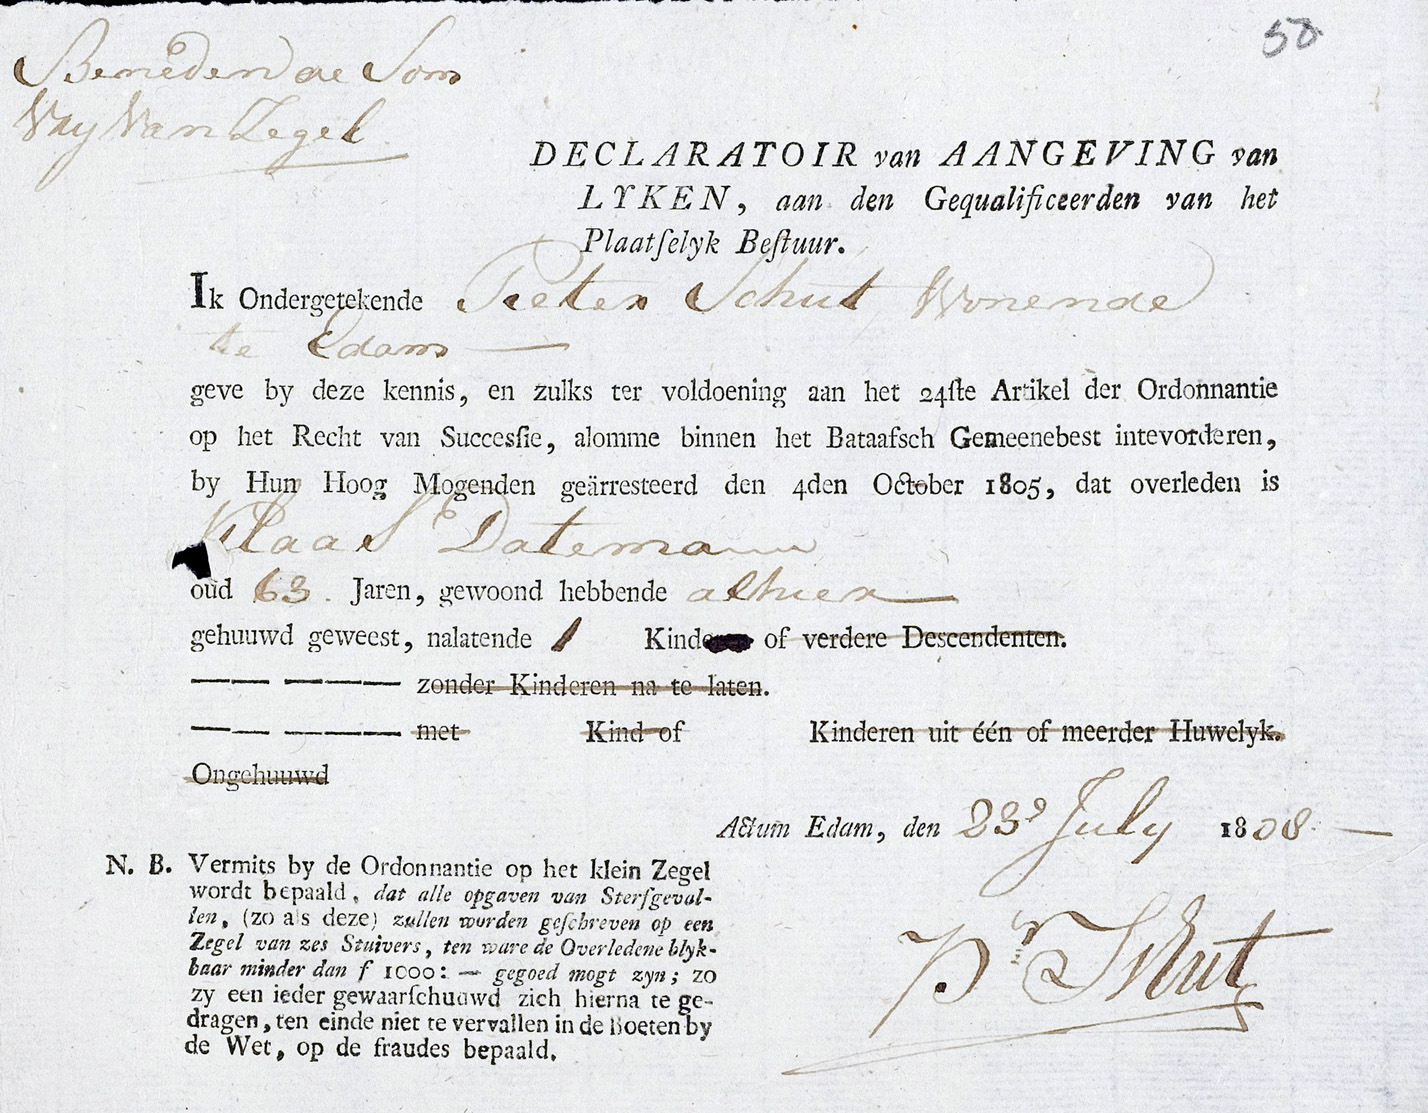 58
Beneden de Som
Vrij Van Zegel
DECLARATOIR van AANGEVING van
LYKEN, aan den Gequalificeerden van het
Plaatſelyk Beſtuur.
Ik Ondergetekende Pieter Schut Wonende
te Edam
geve by deze kennis, en zulks ter voldoening aan het 24ſte Artikel der Ordonnantie
op het Recht van Succesſie, alomme binnen het Bataafsch Gemeenebest intevorderen,
by Hun Hoog Mogenden geärresteerd den 4den October 1805, dat overleden is
Klaas Dateman
oud 63. Jaren, gewoond hebbende alhier
gehuuwd geweest, nalatende 1 Kinderen of verdere Descendenten.
—— ——— zonder Kinderen na te laten.
—— ——— met Kind of Kinderen uit één of meerder Huwelyk.
Ongehuuwd
Actum Edam, den 23e July 1808
N. B. Vermits by de Ordonnantie op het klein Zegel
wordt bepaald, dat alle opgaven van Sterfgeval-
len, (zo als deze) zullen worden geſchreven op een
Zegel van zes Stuivers, ten ware de Overledene blyk-
baar minder dan f 1000: — gegoed mogt zyn; zo
zy een ieder gewaarſchuuwd zich hierna te ge-
dragen, ten einde niet te vervallen in de Boeten by
de Wet, op de fraudes bepaald.
Pr Schut